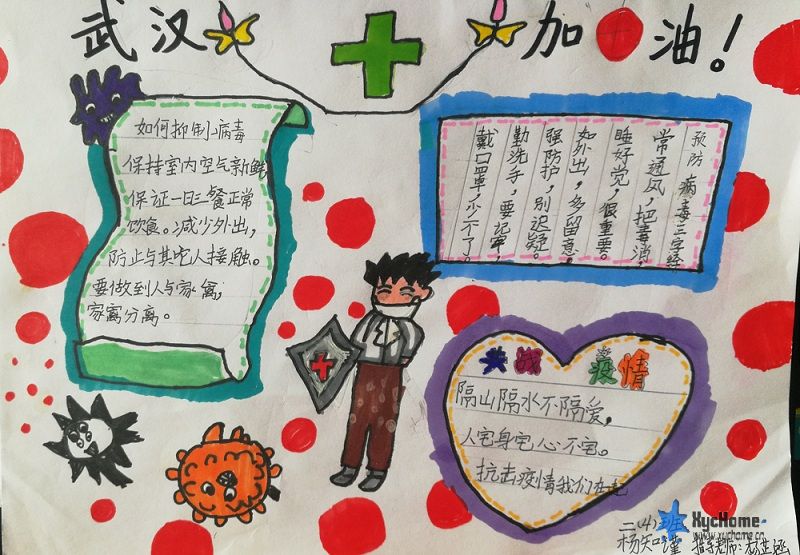 武汉加油!
如何抑制病毒
保持室内空气新鲜
保证一日三餐正常
饮食。减少外出,
防止与其它人接触。
要做到人与家禽,
家禽分离。
预防病毒三字经
常通风,把毒消,
睡好觉,很重要。
如外出,多留意,
强防护,别迟疑。
勤洗手,要记牢,
戴口罩,少不了。
共战疫情
隔山隔水不隔爱,
人宅身宅心不宅。
抗击疫情我们在
二(4)班
杨
XycHome
www.xychome.cn